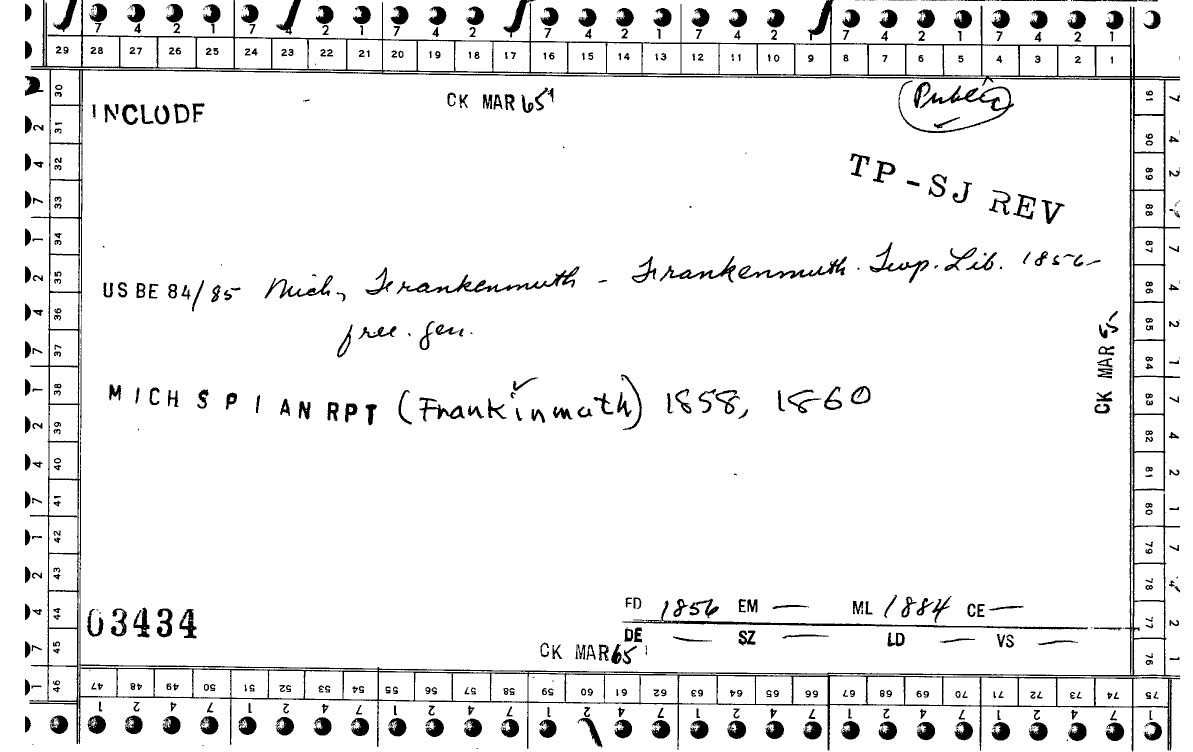 7 4 2 1 7 4 2 1 7 4 2 1 7 4 2 1 7 4 2 1 7 4 2 1 7 4 2 1
29 28 27 26 25 24 23 22 21 20 19 18 17 16 15 14 13 12 11 10 9 8 7 6 5 4 3 2 1
INCLUDE
CK MAR 65
Public
TP-SJ REV
US BE 84/85 Mich, Frankenmuth - Frankenmuth. Twp. Lib. 1856-
free. gen.
MICH SPIAN RPT (Frankinmuth) 1858, 1860
CK MAR 65
03434
FD 1856 EM — ML 1884 CE —
DE — SZ — LD — VS —
CK MAR 65
30 31 32 33 34 35 36 37 38 39 40 41 42 43 44 45 46
91 90 89 88 87 86 85 84 83 82 81 80 79 78 77 76
47 48 49 50 51 52 53 54 55 56 57 58 59 60 61 62 63 64 65 66 67 68 69 70 71 72 73 74 75
1 2 4 7 1 2 4 7 1 2 4 7 1 2 4 7 1 2 4 7 1 2 4 7 1 2 4 7 1